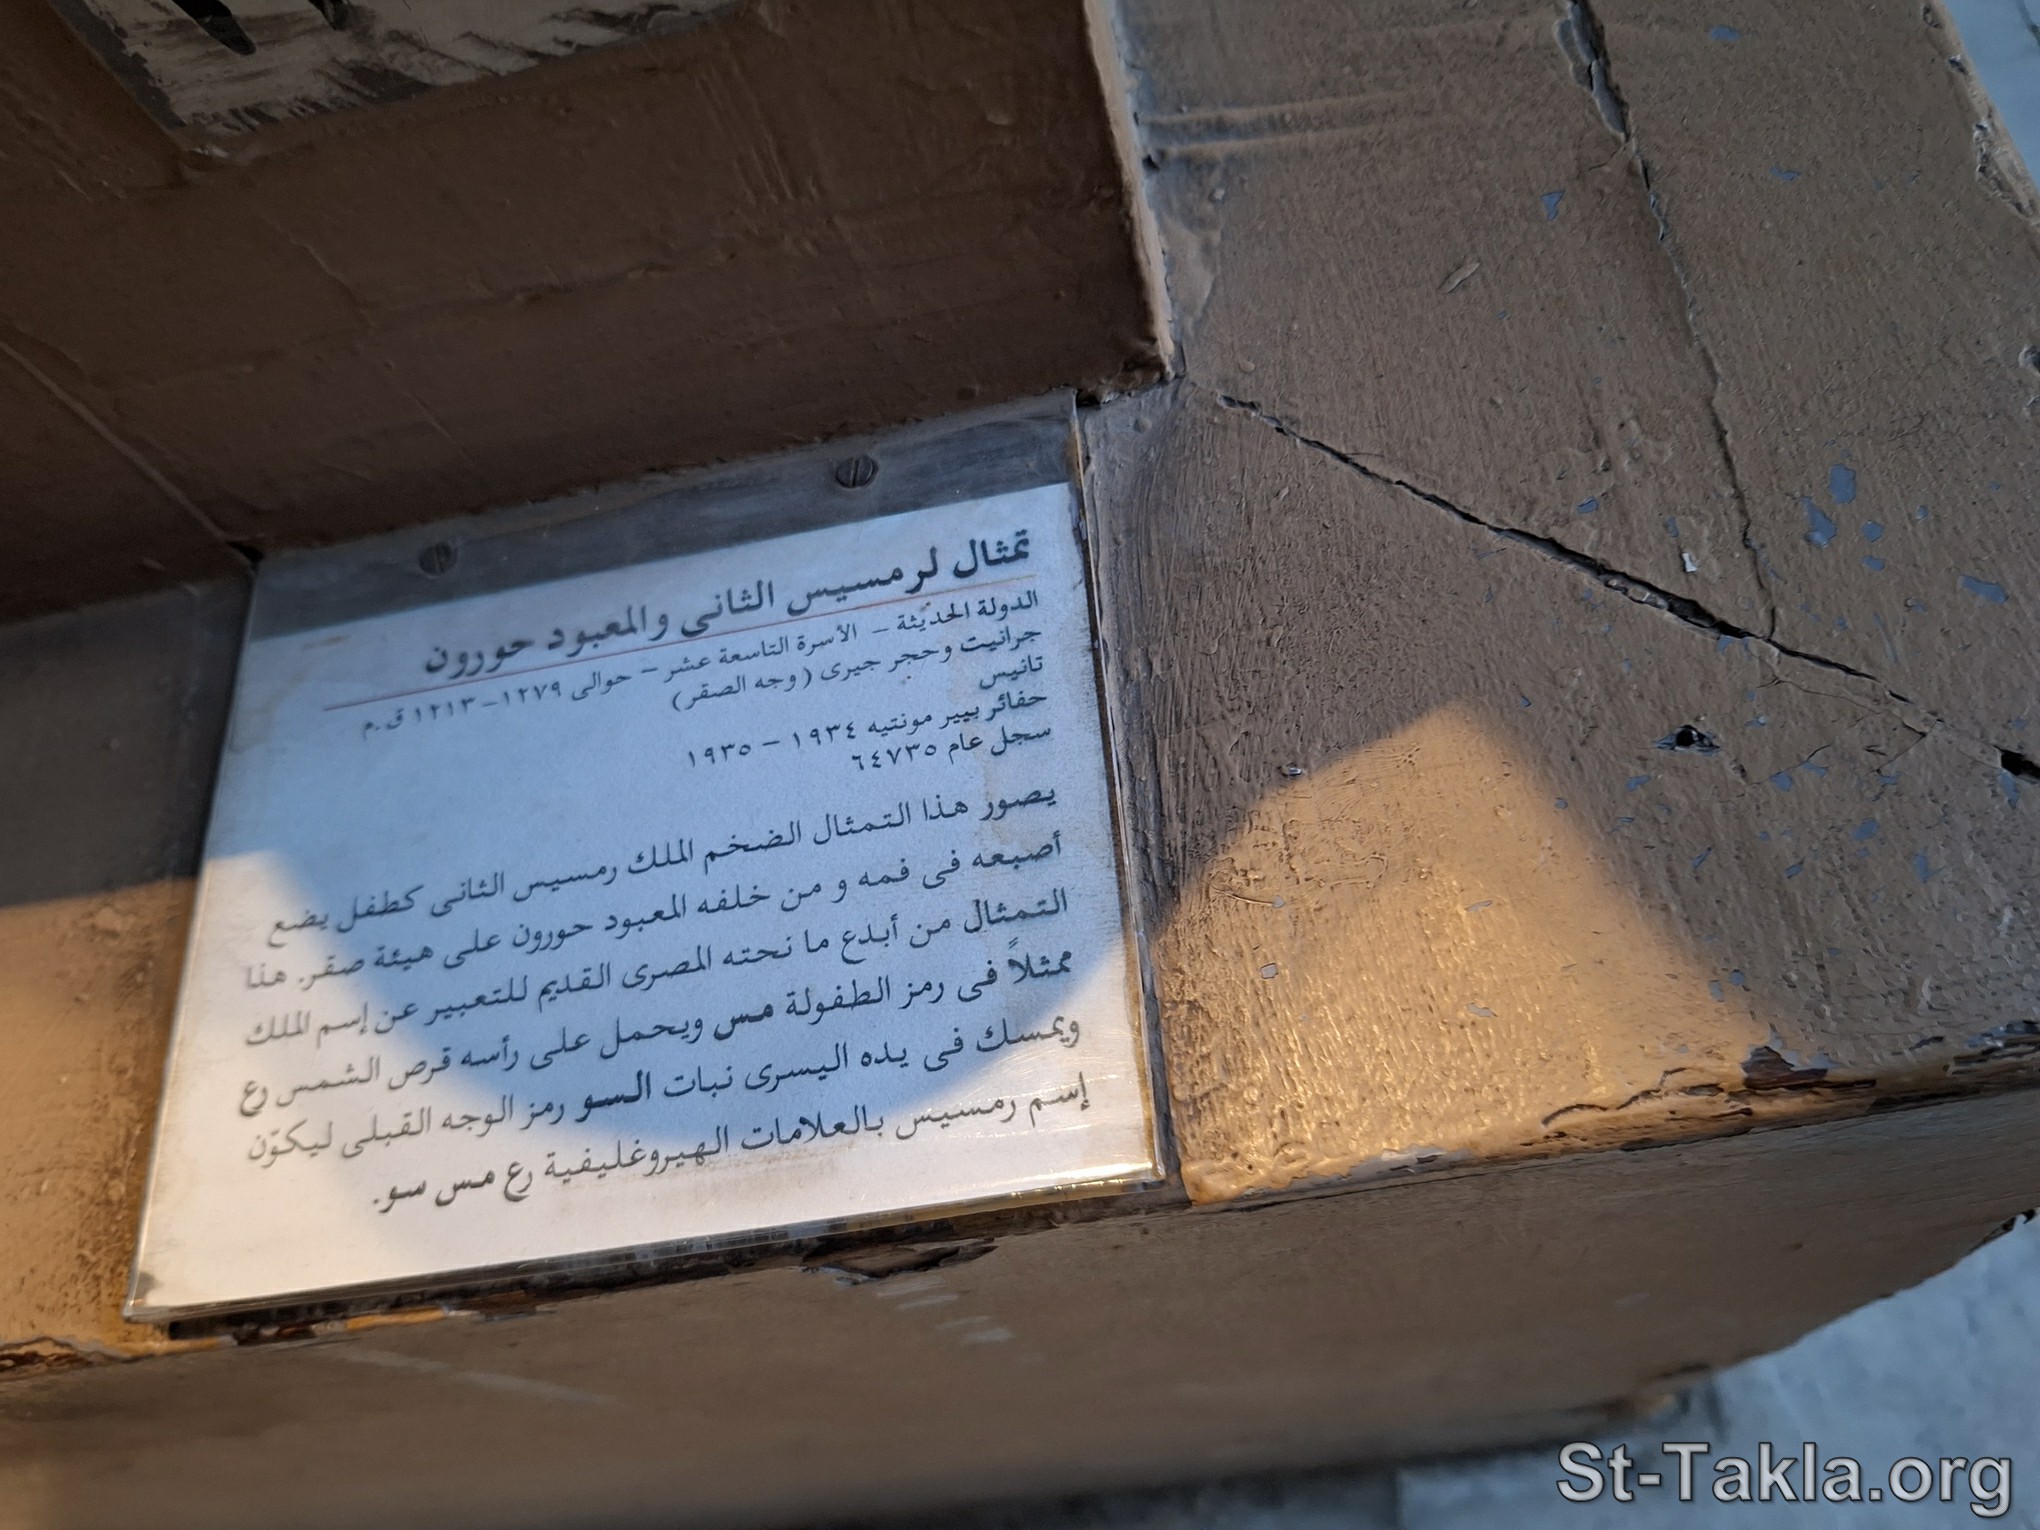 تمثال لرمسيس الثانى والمعبود حورون
الدولة الحديثة – الأسرة التاسعة عشر – حوالى ١٢٧٩ – ١٢١٣ ق.م
جرانيت وحجر جيرى (وجه الصقر)
تانيس
حفائر بيير مونتيه ١٩٣٤ – ١٩٣٥
سجل عام ٦٤٧٣٥
يصور هذا التمثال الضخم الملك رمسيس الثانى كطفل يضع
أصبعه فى فمه و من خلفه المعبود حورون على هيئة صقر. هذا
التمثال من أبدع ما نحته المصرى القديم للتعبير عن إسم الملك
ممثلاً فى رمز الطفولة مس ويحمل على رأسه قرص الشمس رع
ويمسك فى يده اليسرى نبات السو رمز الوجه القبلى ليكوّن
إسم رمسيس بالعلامات الهيروغليفية رع مس سو.
St-Takla.org